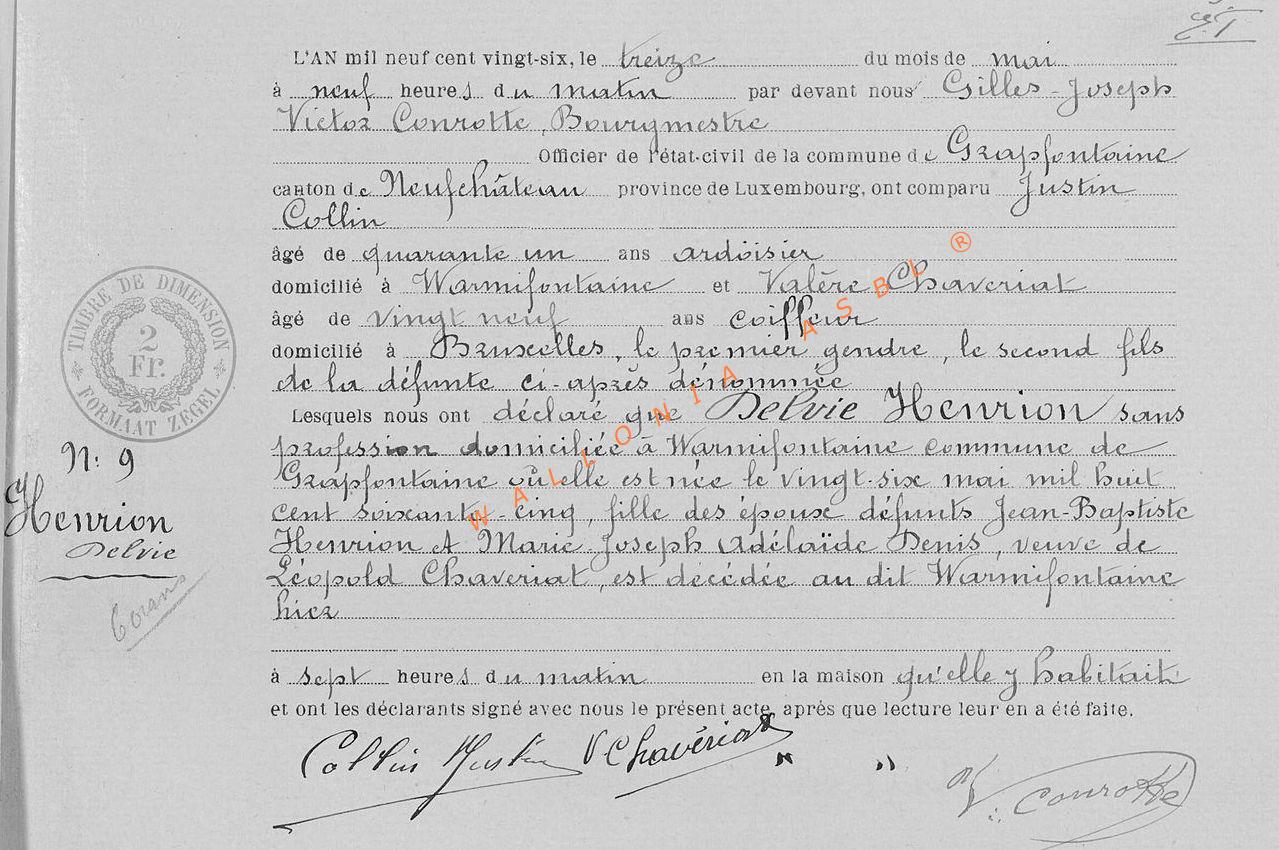 L'AN mil neuf cent vingt-six, le treize du mois de mai
à neuf heures du matin par devant nous Gilles-Joseph
Victor Conrotte, Bourgmestre
Officier de l'état-civil de la commune de Grapfontaine
canton de Neufchâteau province de Luxembourg, ont comparu Justin
Collin
âgé de quarante un ans ardoisier
domicilié à Warmifontaine et Valère Chaveriat
âgé de vingt neuf ans coiffeur
domicilié à Bruxelles, le premier gendre, le second fils
de la défunte ci-après dénommée
Lesquels nous ont déclaré que Delvie Henrion sans
profession domiciliée à Warmifontaine commune de
Grapfontaine où elle est née le vingt-six mai mil huit
cent soixante-cinq, fille des époux défunts Jean-Baptiste
Henrion et Marie Joseph Adélaïde Denis, veuve de
Léopold Chaveriat, est décédée au dit Warmifontaine
hier
à sept heures du matin en la maison qu'elle y habitait
et ont les déclarants signé avec nous le présent acte, après que lecture leur en a été faite.
Collin Justin V Chavériat " "
V. Conrotte
TIMBRE DE DIMENSION
2
Fr.
FORMAAT ZEGEL
N: 9
Henrion
Delvie
WALLONIA ASBL ®